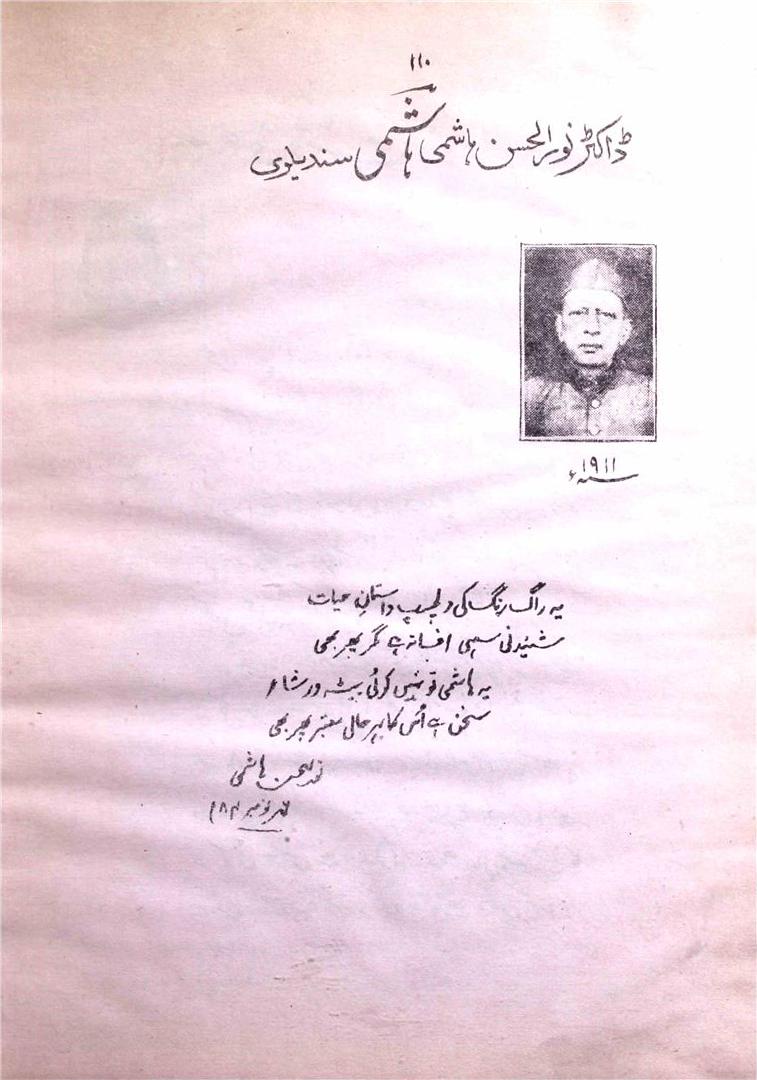 ۱۱۰
ڈاکٹر نورالحسن ہاشمی ہاشمی سندیلوی
۱۹۱۱ سنہء
یہ راگ رنگ کی دلچسپ داستانِ حیات
شنیدنی سہی افسانہ ہے مگر پھر بھی
یہ ہاشمی تو نہیں کوئی پیشہ ور شاعر
سخن ہے اُس کا بہرحال معتبر پھر بھی
نورالحسن ہاشمی
نومبر ۸۲ء